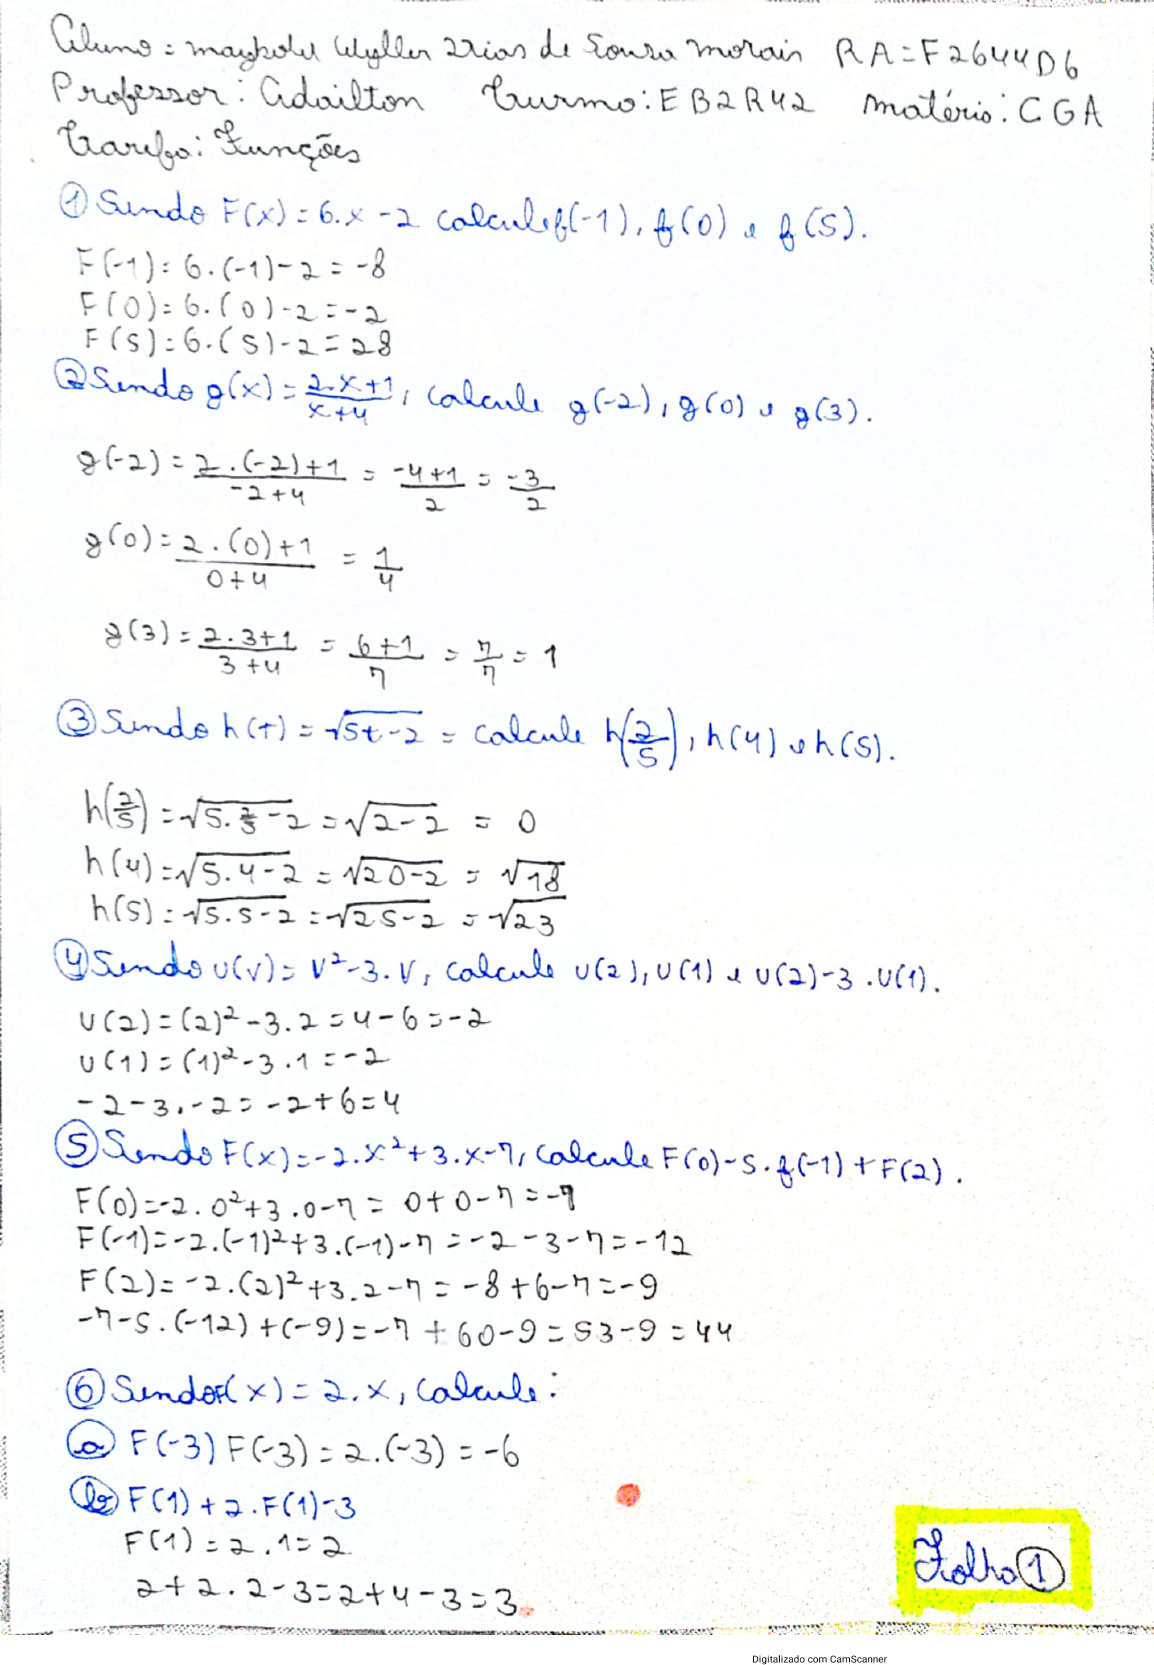 Aluno = maykolu Wyller Dias de Souza morais RA=F2644D6
Professor: Adailton Turma: EB2R42 matéria: CGA
Tarefa: Funções
① Sendo F(x)=6.x-2 calcule f(-1), f(0) e f(5).
F(-1)=6.(-1)-2=-8
F(0)=6.(0)-2=-2
F(5)=6.(5)-2=28
② Sendo g(x)=2.x+1/x+4, calcule g(-2), g(0) e g(3).
g(-2)=2.(-2)+1/-2+4 = -4+1/2 = -3/2
g(0)=2.(0)+1/0+4 = 1/4
g(3)=2.3+1/3+4 = 6+1/7 = 7/7 = 1
③ Sendo h(t)=√5t-2 = calcule h(2/5), h(4) e h(5).
h(2/5)=√5.2/5-2=√2-2 = 0
h(4)=√5.4-2=√20-2=√18
h(5)=√5.5-2=√25-2=√23
④ Sendo u(v)=v²-3.v, calcule u(2), u(1) e u(2)-3.u(1).
u(2)=(2)²-3.2=4-6=-2
u(1)=(1)²-3.1=-2
-2-3.-2=-2+6=4
⑤ Sendo F(x)=-2.x²+3.x-7, calcule F(0)-5.f(-1)+F(2).
F(0)=-2.0²+3.0-7=0+0-7=-7
F(-1)=-2.(-1)²+3.(-1)-7=-2-3-7=-12
F(2)=-2.(2)²+3.2-7=-8+6-7=-9
-7-5.(-12)+(-9)=-7+60-9=53-9=44
⑥ Sendo F(x)=2.x, calcule:
ⓐ F(-3) F(-3)=2.(-3)=-6
ⓑ F(1)+2.F(1)-3
F(1)=2.1=2
2+2.2-3=2+4-3=3
Folha ①
Digitalizado com CamScanner